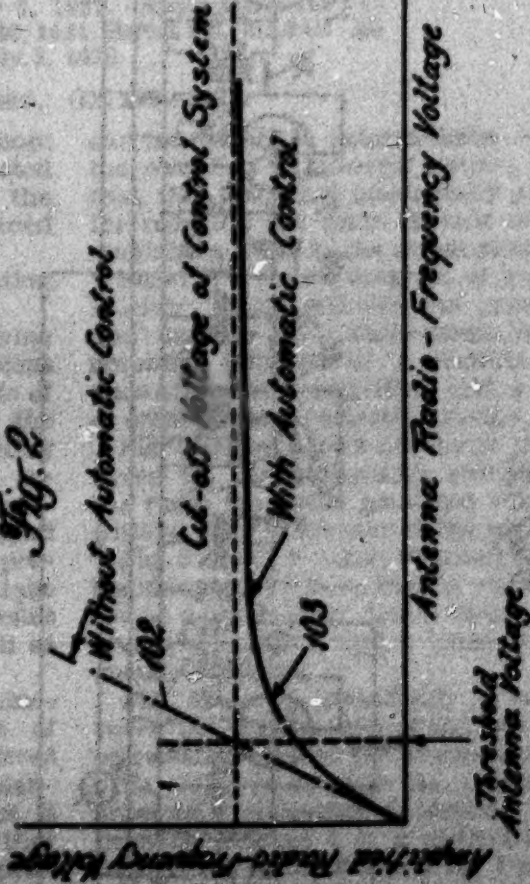 Fig. 2
Without Automatic Control
102
Cut-off Voltage of Control System
With Automatic Control
103
Antenna Radio-Frequency Voltage
Threshold
Antenna Voltage
Amplified Radio-Frequency Voltage